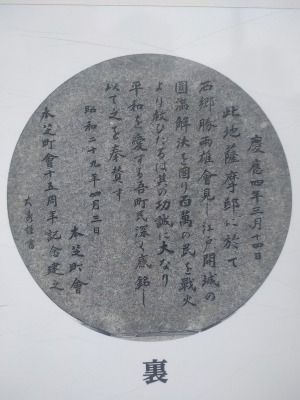 慶應四年三月十四日
此地薩摩邸に於て
西郷勝両雄會見し江戸開城の
圓満解決を図り百萬の民を戦火
より救ひたるは其の功誠に大なり
平和を愛する吾町民深く感銘し
以て之を奉賛す
昭和二十九年四月三日
本芝町會
本芝町會十五周年記念建之
裏